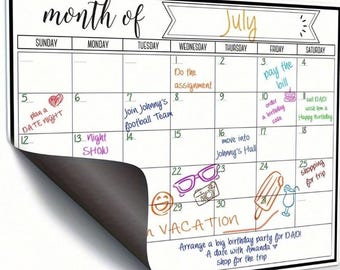 month of July
SUNDAY MONDAY TUESDAY WEDNESDAY THURSDAY FRIDAY SATURDAY
1 2 3 4
Do the
assignment
pay the
bill
5 6 7 8 9 10
plan a
DATE NIGHT
join Johnny's
football Team
order
a birthday
cake
call DAD!
wish him a
Happy Birthday
12 13 14 15 16 17 18
Night
SHOW
move into
Johnny's Hall
22 23 24 25
shopping
for trip
29
VACATION
Arrange a big birthday party for DAD!
A date with Amanda
shop for the trip